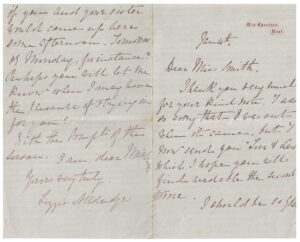 Old Charlton,
Kent.
Jan 4th.
Dear Miss Smith.
Thank you very much
for your kind note. I was
so sorry that I was out
when the came. but I
now send you "Love &
which I hope you will
find readable the second
time.
I should be so glad
if you and your sister
would come up here
some afternoon. Tomorrow
or Thursday, for instance?
Perhaps you will let me
know when I may have
the pleasure of
for you?
With the Compts of the
season. I am dear Miss
Yours very truly
Lizzie